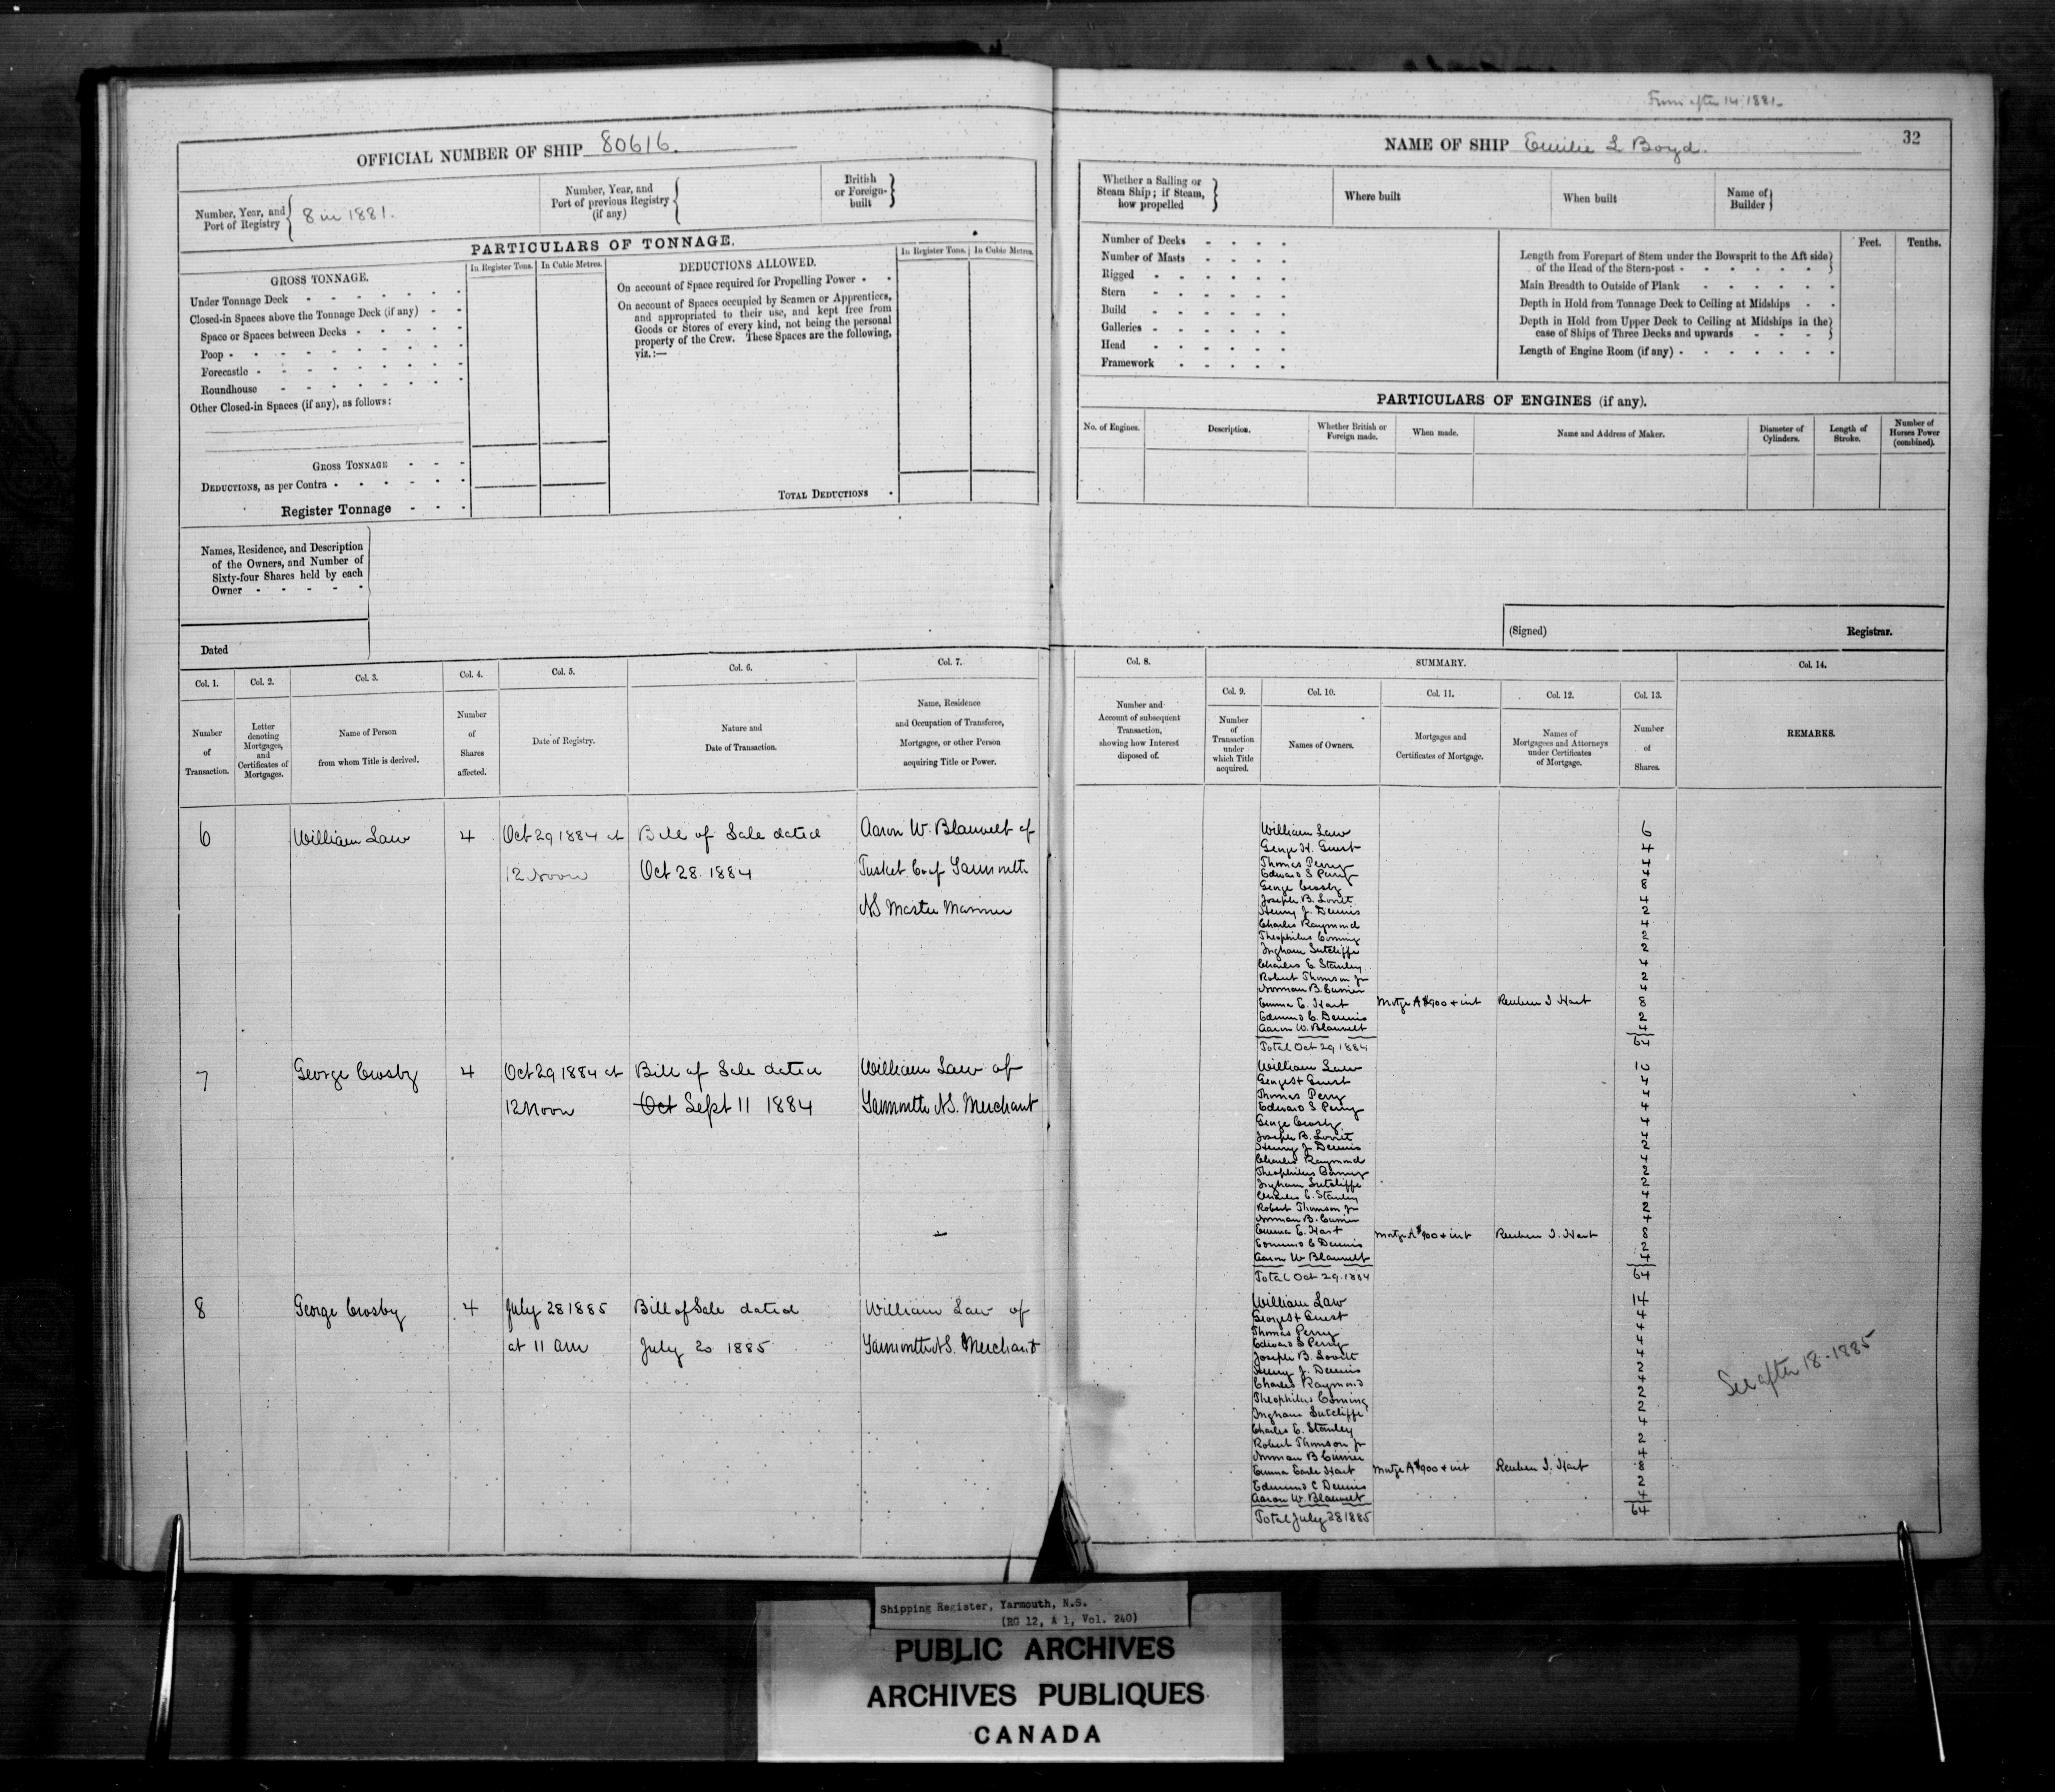 From after 14 1881
OFFICIAL NUMBER OF SHIP 80616.
Number, Year, and Port of Registry
8 in 1881.
Number, Year, and Port of previous Registry (if any)
British or Foreign-built
PARTICULARS OF TONNAGE.
GROSS TONNAGE.
In Register Tons.
In Cubic Metres.
Under Tonnage Deck
Closed-in Spaces above the Tonnage Deck (if any)
Space or Spaces between Decks
Poop
Forecastle
Roundhouse
Other Closed-in Spaces (if any), as follows:
GROSS TONNAGE
DEDUCTIONS, as per Contra
Register Tonnage
DEDUCTIONS ALLOWED.
In Register Tons.
In Cubic Metres.
On account of Space required for Propelling Power
On account of Spaces occupied by Seamen or Apprentices,
and appropriated to their use, and kept free from
Goods or Stores of every kind, not being the personal
property of the Crew. These Spaces are the following,
viz.:—
TOTAL DEDUCTIONS
Names, Residence, and Description
of the Owners, and Number of
Sixty-four Shares held by each
Owner
Dated
NAME OF SHIP Emilie L Boyd.
32
Whether a Sailing or
Steam Ship; if Steam,
how propelled
Where built
When built
Name of Builder
Number of Decks
Number of Masts
Rigged
Stern
Build
Galleries
Head
Framework
Feet.
Tenths.
Length from Forepart of Stem under the Bowsprit to the Aft side
of the Head of the Stern-post
Main Breadth to Outside of Plank
Depth in Hold from Tonnage Deck to Ceiling at Midships
Depth in Hold from Upper Deck to Ceiling at Midships in the
case of Ships of Three Decks and upwards
Length of Engine Room (if any)
PARTICULARS OF ENGINES (if any).
No. of Engines.
Description.
Whether British or Foreign made.
When made.
Name and Address of Maker.
Diameter of Cylinders.
Length of Stroke.
Number of Horses Power (combined).
(Signed)
Registrar.
Col. 1.
Number of Transaction.
Col. 2.
Letter denoting Mortgages, and Certificates of Mortgages.
Col. 3.
Name of Person from whom Title is derived.
Col. 4.
Number of Shares affected.
Col. 5.
Date of Registry.
Col. 6.
Nature and Date of Transaction.
Col. 7.
Name, Residence and Occupation of Transferee, Mortgagee, or other Person acquiring Title or Power.
Col. 8.
Number and Account of subsequent Transaction, showing how Interest disposed of.
SUMMARY.
Col. 9.
Number of Transaction under which Title acquired.
Col. 10.
Names of Owners.
Col. 11.
Mortgages and Certificates of Mortgage.
Col. 12.
Names of Mortgagees and Attorneys under Certificates of Mortgage.
Col. 13.
Number of Shares.
Col. 14.
REMARKS.
6 William Law 4 Oct 29 1884 at Bill of Sale dated Aaron W. Blauvelt of
12 Noon Oct 28. 1884 Tusket Co of Yarmouth
NS Master Mariner
William Law 6
George H. Guest 4
Thomas Perry 4
Edward S Perry 4
George Crosby 8
Joseph B. Lovitt 4
Henry J. Dennis 2
Charles Raymond 4
Theophilus Corning 2
Ingham Sutcliffe 2
Charles E. Stanley 4
Robert Thomson Jr 2
Norman B. Currier 4
Emma E. Hart Mortge A $900 + int Reuben I Hart 8
Edmund C. Dennis 2
Aaron W. Blauvelt 4
Total Oct 29 1884 64
7 George Crosby 4 Oct 29 1884 at Bill of Sale dated William Law of
12 Noon Oct Sept 11 1884 Yarmouth NS. Merchant
William Law 10
George H Guest 4
Thomas Perry 4
Edward S Perry 4
George Crosby 4
Joseph B. Lovitt 4
Henry J Dennis 2
Charles Raymond 4
Theophilus Corning 2
Ingham Sutcliffe 2
Charles E. Stanley 4
Robert Thomson Jr 2
Norman B. Currier 4
Emma E. Hart Mortge A $900 + int Reuben I. Hart 8
Edmund C Dennis 2
Aaron W Blauvelt 4
Total Oct 29. 1884 64
8 George Crosby 4 July 28 1885 Bill of Sale dated William Law of
at 11 am July 20 1885 Yarmouth NS. Merchant
William Law 14
George H Guest 4
Thomas Perry 4
Edward S Perry 4
Joseph B. Lovitt 4
Henry J. Dennis 2
Charles Raymond 4
Theophilus Corning 2
Ingham Sutcliffe 2
Charles E. Stanley 4
Robert Thomson Jr 2
Norman B Currier 4
Emma Earle Hart Mortge A $900 + int Reuben I. Hart 8
Edmund C Dennis 2
Aaron W. Blauvelt 4
Total July 28 1885 64
See after 18-1885
Shipping Register, Yarmouth, N.S.
(RG 12, A 1, Vol. 240)
PUBLIC ARCHIVES
ARCHIVES PUBLIQUES
CANADA